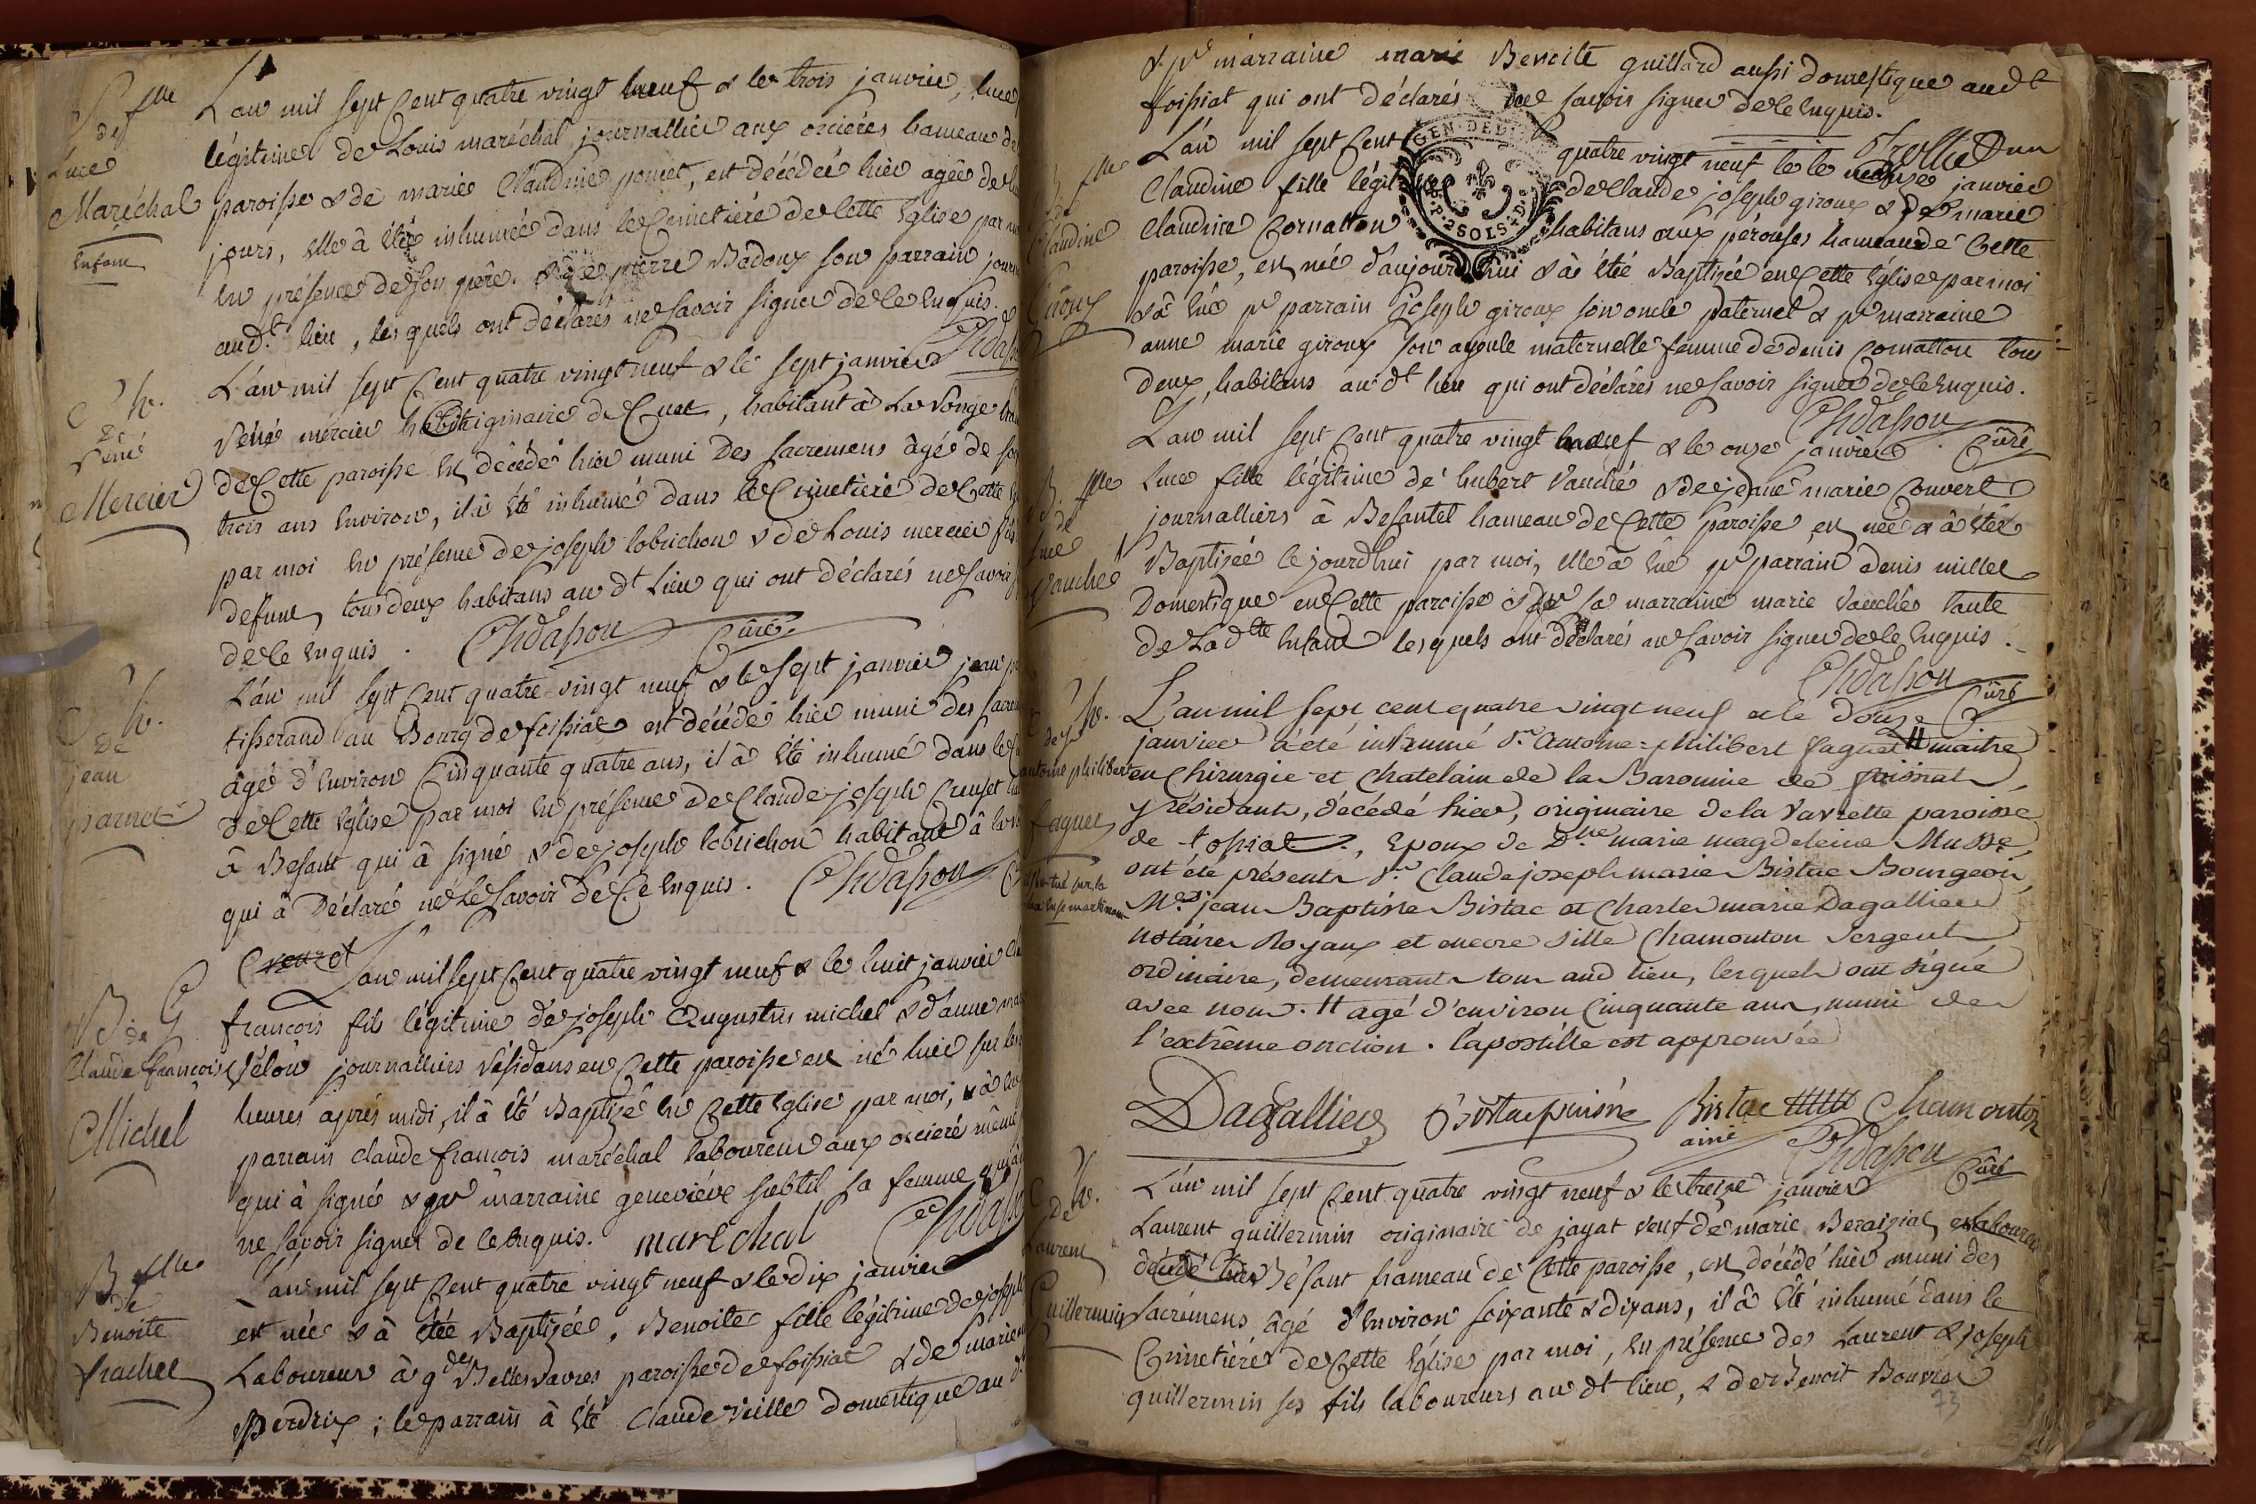 S. flle
de
Luce
Maréchal
enfant
L'an mil sept Cent quatre vingt neuf & le trois janvier, luce
légitime de Louis maréchal journallier aux orcières hameau de
paroisse & de marie Claudine poncet, est décédée hier agée de
jours, elle à été inhumée dans le Cimetière de Cette Eglise par
en présence de son père. & de pierre Badoux son parrain journ
aud.t lieu, les quels ont déclarés ne savoir signer de Ce Enquis.
Chdasson
S. h.
De
René
Mercier
L'an mil sept Cent quatre vingt neuf & le sept janvier
René mercier originaire de Cuet, habitant à La Vonge
de Cette paroisse est décédé hier muni Des sacremens âgé de soi
trois ans Environ, il à été inhumé dans le Cimetière de Cette
par moi En présence de joseph lobrichon & de Louis mercier fils
defunt, tous deux habitans au dt Lieu qui ont déclarés ne savoir
de Ce Enquis. Chdasson Curé.
S. h.
De
jean
parnet
L'an mil sept Cent quatre-vingt neuf & le sept janvier jean
tisserand au Bourg de foissiat est décédé hier muni des sacre
âgé d'Environ Cinquante quatre ans, il à été inhumé dans le
de Cette Eglise par moi En présence de Claude joseph Creuzet
à Besant qui à signé & de joseph lobrichon habitant à
qui à Déclaré ne le savoir de Ce Enquis. Chdasson
Creuzet
B. G
de
Claude françois
Michel
L'an mil sept Cent quatre vingt neuf & le huit janvier
françois fils légitime de joseph Augustin michel & d'anne
Vélon journalliers Résidans en Cette paroisse est né hier sur les
heures après midi, il à été Baptizé En Cette Eglise par moi, & à
parrain claude françois maréchal laboureur aux orcière même
qui à signé & pr marraine geneviéve subtil sa femme
ne savoir signer de Ce Enquis. marechal Chdass
B flle
de
Benoite
frachet
L'an mil sept Cent quatre vingt neuf & le dix janvier
est née & à été Baptizée, Benoite fille légitime de joseph
Laboureur à gde Bellesvavres paroisse de foissiat & de marie
Perdrix; le parrain à été Claude Veille domestique au dt
& pr marraine marie Benoite guillard aussi domestique audt
foissiat qui ont déclarés ne savoir signer de Ce Enquis.
GEN. DE D
P. 2 SOLS. D.
B flle
de
Claudine
Giroux
L'an mil sept Cent quatre vingt neuf le janvier
Claudine fille légitime de Claude joseph giroux & de marie
Claudine Cornatton habitans aux pérouses hameau de Cette
paroisse, est née d'aujourd'hui & à été Baptizée en Cette Eglise par moi
& à Eue pr parrain joseph giroux son oncle paternel & pr marraine
anne marie giroux son ayeule maternelle femme de denis Cornatton tous
deux, habitans au dt lieu qui ont déclarés ne savoir signer de Ce Enquis.
Chdasson Curé
B. flle
de
Luce
Vauché
L'an mil sept Cent quatre vingt neuf & le onze janvier
Luce fille légitime de hubert Vauché & de jeanne marie Convert
journalliers à Besantet hameau de Cette paroisse, est née & à été
Baptizée le jourd'hui par moi, elle à Eue pr parrain denis millet
Domestique en Cette paroisse & pr sa marraine marie Vauchés tante
de Ladte Enfant les quels ont déclarés ne savoir signer de Ce Enquis.
Chdasson Curé
S. h.
de Sr
antoine philibert
faguet
L'an mil sept cent quatre vingt neuf et le Douze
janvier a été inhumé Sr Antoine-Philibert faguet # maitre
en Chirurgie et Chatelain de la Baronnie de foissiat,
y résidant, décédé hier, originaire de la Varrette paroisse
de fossiat, Epoux de Dlle marie magdeleine Musse,
ont été présents Sr Claude joseph marie Bistac Bourgeois,
Mes jean Baptiste Bistac et Charles marie Dagallier
notaires Royaux et encore Sille Chamonton Sergent
ordinaire, demeurants tous aud lieu, lesquels ont signé
avec nous. # agé d'environ Cinquante ans, muni de
l'extrême onction. l'apostille est approuvée
Dagallier Bistac puisné Bistac ainé Chamonton
Chdasson Curé
S. h.
de
Laurent
Guillermin
L'an mil sept Cent quatre vingt neuf & le treize janvier
Laurent guillermin originaire de jayat veuf de marie Beraiziat, laboureur
Bésant hameau de Cette paroisse, est décédé hier muni des
Sacrémens âgé d'Environ soixante & dix ans, il à été inhumé dans le
Cimetière de Cette Eglise par moi, En présence des Laurent & joseph
guillermin ses fils laboureurs au dt lieu, & de Benoit Bouvier
73